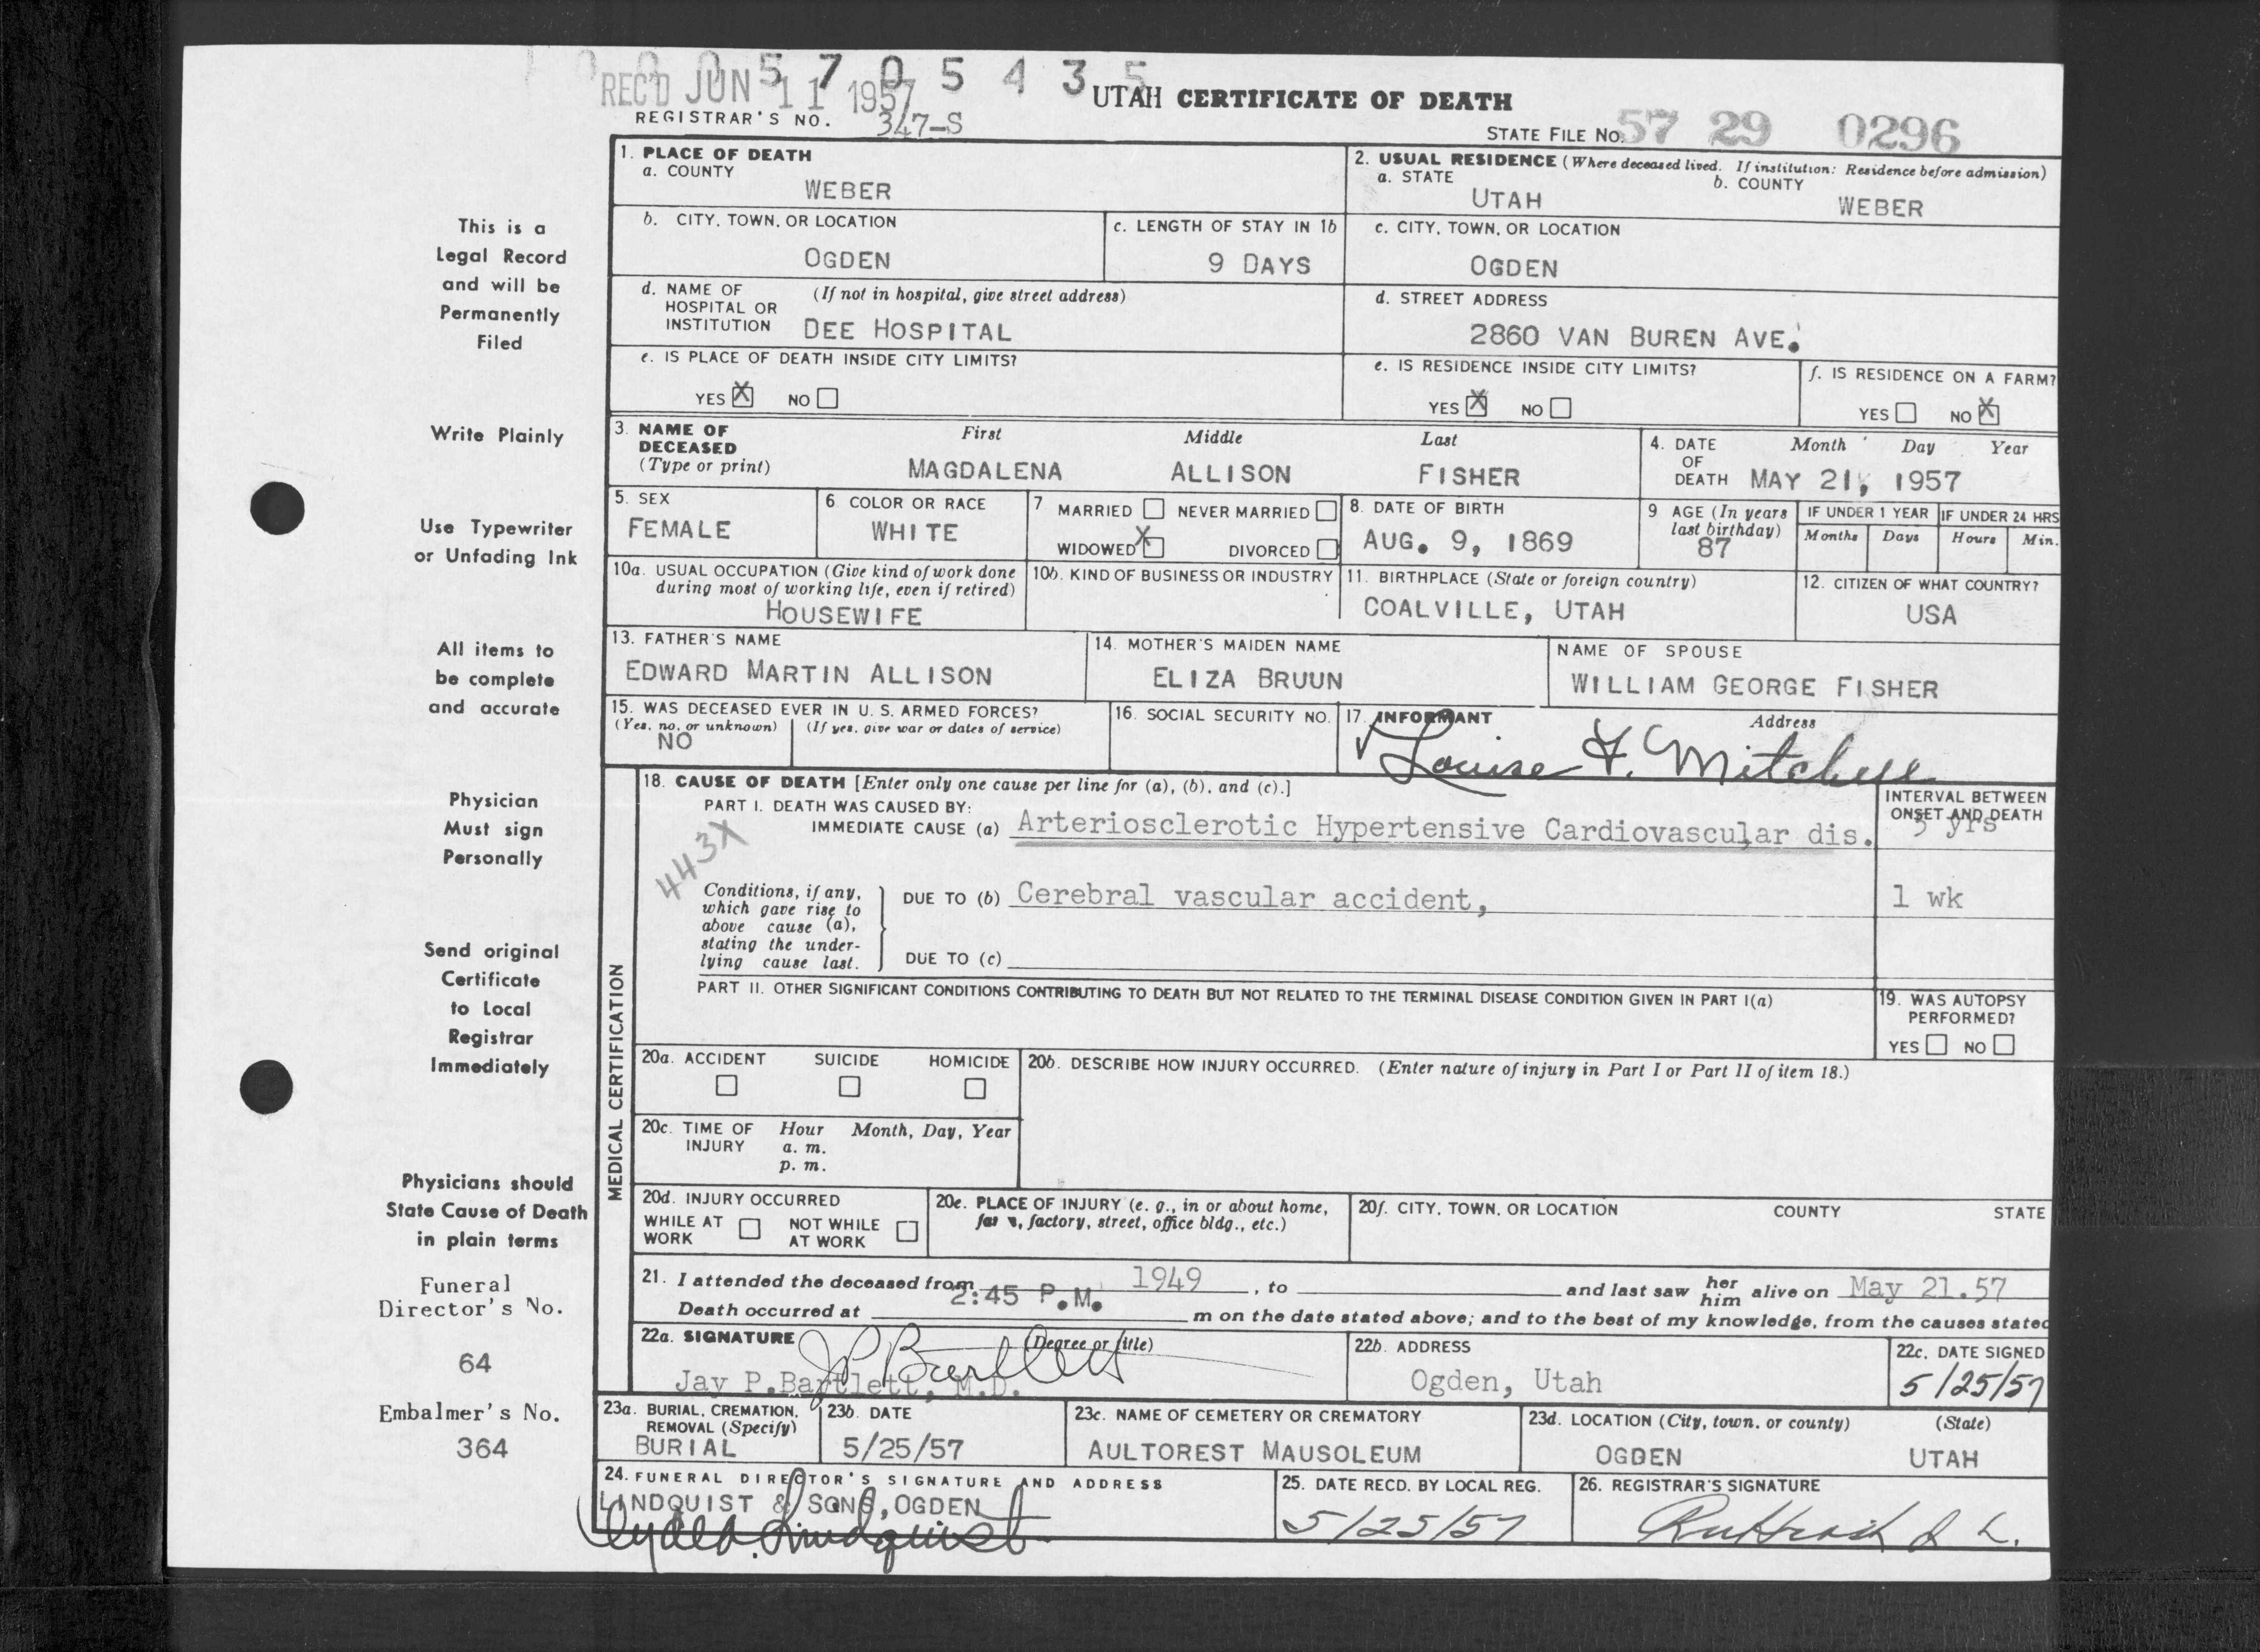 0 0 5 7 0 5 4 3 5
REC'D JUN 11 1957
UTAH CERTIFICATE OF DEATH
REGISTRAR'S NO. 347-S
STATE FILE NO. 57 29 0296
This is a
Legal Record
and will be
Permanently
Filed
Write Plainly
Use Typewriter
or Unfading Ink
All items to
be complete
and accurate
Physician
Must sign
Personally
Send original
Certificate
to Local
Registrar
Immediately
Physicians should
State Cause of Death
in plain terms
Funeral
Director's No.
64
Embalmer's No.
364
1. PLACE OF DEATH
a. COUNTY
WEBER
2. USUAL RESIDENCE (Where deceased lived. If institution: Residence before admission)
a. STATE
UTAH
b. COUNTY
WEBER
b. CITY, TOWN, OR LOCATION
OGDEN
c. LENGTH OF STAY IN 1b
9 DAYS
c. CITY, TOWN, OR LOCATION
OGDEN
d. NAME OF HOSPITAL OR INSTITUTION
(If not in hospital, give street address)
DEE HOSPITAL
d. STREET ADDRESS
2860 VAN BUREN AVE.
e. IS PLACE OF DEATH INSIDE CITY LIMITS?
YES X NO
e. IS RESIDENCE INSIDE CITY LIMITS?
YES X NO
f. IS RESIDENCE ON A FARM?
YES NO X
3. NAME OF DECEASED (Type or print)
First Middle Last
MAGDALENA ALLISON FISHER
4. DATE OF DEATH
Month Day Year
MAY 21, 1957
5. SEX
FEMALE
6. COLOR OR RACE
WHITE
7 MARRIED NEVER MARRIED
WIDOWED X DIVORCED
8. DATE OF BIRTH
AUG. 9, 1869
9 AGE (In years last birthday)
87
IF UNDER 1 YEAR
Months Days
IF UNDER 24 HRS
Hours Min.
10a. USUAL OCCUPATION (Give kind of work done during most of working life, even if retired)
HOUSEWIFE
10b. KIND OF BUSINESS OR INDUSTRY
11. BIRTHPLACE (State or foreign country)
COALVILLE, UTAH
12. CITIZEN OF WHAT COUNTRY?
USA
13. FATHER'S NAME
EDWARD MARTIN ALLISON
14. MOTHER'S MAIDEN NAME
ELIZA BRUUN
NAME OF SPOUSE
WILLIAM GEORGE FISHER
15. WAS DECEASED EVER IN U. S. ARMED FORCES?
(Yes, no, or unknown) (If yes, give war or dates of service)
NO
16. SOCIAL SECURITY NO.
17. INFORMANT Address
Louise F. Mitchell
MEDICAL CERTIFICATION
18. CAUSE OF DEATH [Enter only one cause per line for (a), (b), and (c).]
PART I. DEATH WAS CAUSED BY:
IMMEDIATE CAUSE (a) Arteriosclerotic Hypertensive Cardiovascular dis.
INTERVAL BETWEEN ONSET AND DEATH
yrs
443X
Conditions, if any, which gave rise to above cause (a), stating the underlying cause last.
DUE TO (b) Cerebral vascular accident,
1 wk
DUE TO (c)
PART II. OTHER SIGNIFICANT CONDITIONS CONTRIBUTING TO DEATH BUT NOT RELATED TO THE TERMINAL DISEASE CONDITION GIVEN IN PART I(a)
19. WAS AUTOPSY PERFORMED?
YES NO
20a. ACCIDENT SUICIDE HOMICIDE
20b. DESCRIBE HOW INJURY OCCURRED. (Enter nature of injury in Part I or Part II of item 18.)
20c. TIME OF INJURY
Hour Month, Day, Year
a. m.
p. m.
20d. INJURY OCCURRED
WHILE AT WORK NOT WHILE AT WORK
20e. PLACE OF INJURY (e. g., in or about home, factory, street, office bldg., etc.)
20f. CITY, TOWN, OR LOCATION COUNTY STATE
21. I attended the deceased from 1949, to and last saw her him alive on May 21.57
Death occurred at 2:45 P.M. m on the date stated above; and to the best of my knowledge, from the causes stated
22a. SIGNATURE (Degree or title)
JP Bartlett
Jay P.Bartlett, M.D.
22b. ADDRESS
Ogden, Utah
22c. DATE SIGNED
5/25/57
23a. BURIAL, CREMATION, REMOVAL (Specify)
BURIAL
23b. DATE
5/25/57
23c. NAME OF CEMETERY OR CREMATORY
AULTOREST MAUSOLEUM
23d. LOCATION (City, town, or county) (State)
OGDEN UTAH
24. FUNERAL DIRECTOR'S SIGNATURE AND ADDRESS
LINDQUIST & SONS, OGDEN
Lindquist
25. DATE RECD. BY LOCAL REG.
5/25/57
26. REGISTRAR'S SIGNATURE